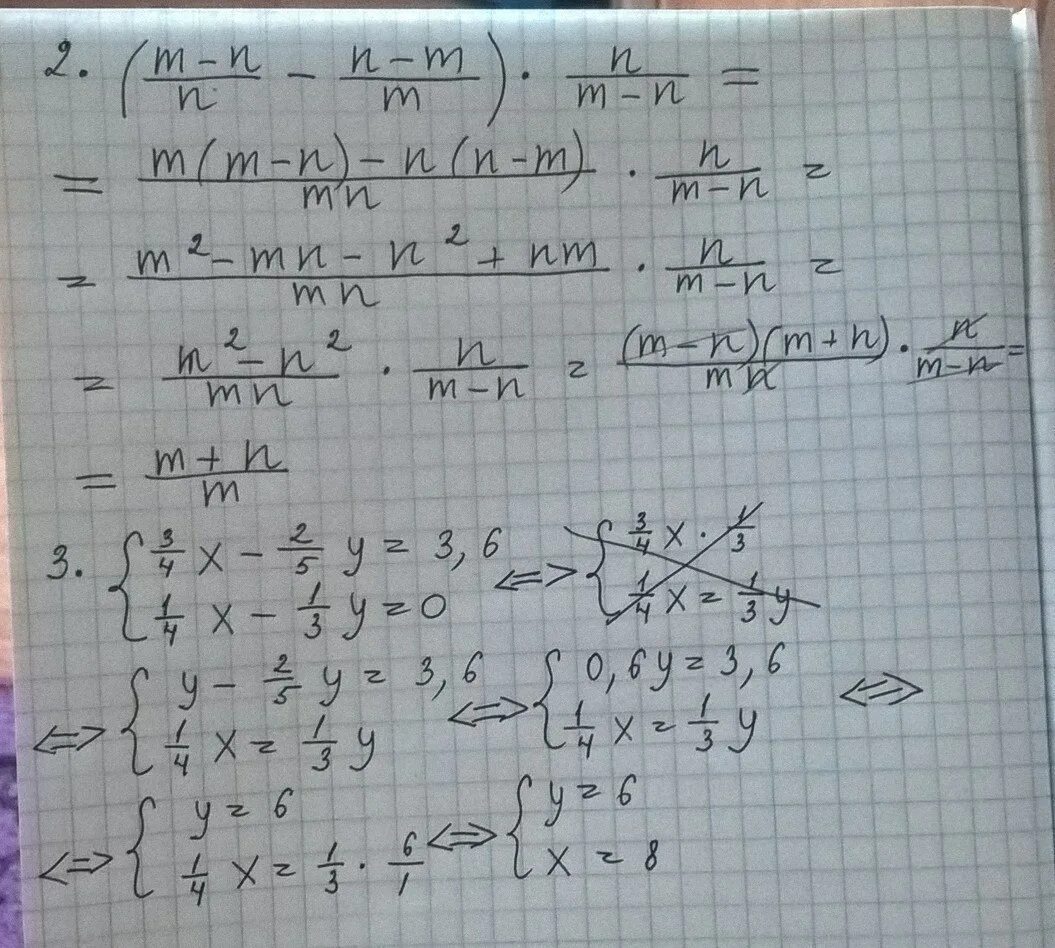 2. ((m-n)/n - (n-m)/m) · n/(m-n) =
= (m(m-n)-n(n-m))/(mn) · n/(m-n) =
= (m²-mn-n²+nm)/(mn) · n/(m-n) =
= (m²-n²)/(mn) · n/(m-n) = ((m-n)(m+n))/(mn) · n/(m-n) =
= (m+n)/m
3. { 3/4 x - 2/5 y = 3,6 ; 1/4 x - 1/3 y = 0 ⇔ { 3/4 x · 1/3 ; 1/4 x = 1/3 y
⇔ { y - 2/5 y = 3,6 ; 1/4 x = 1/3 y ⇔ { 0,6y = 3,6 ; 1/4 x = 1/3 y ⇔
⇔ { y = 6 ; 1/4 x = 1/3 · 6/1 ⇔ { y = 6 ; x = 8